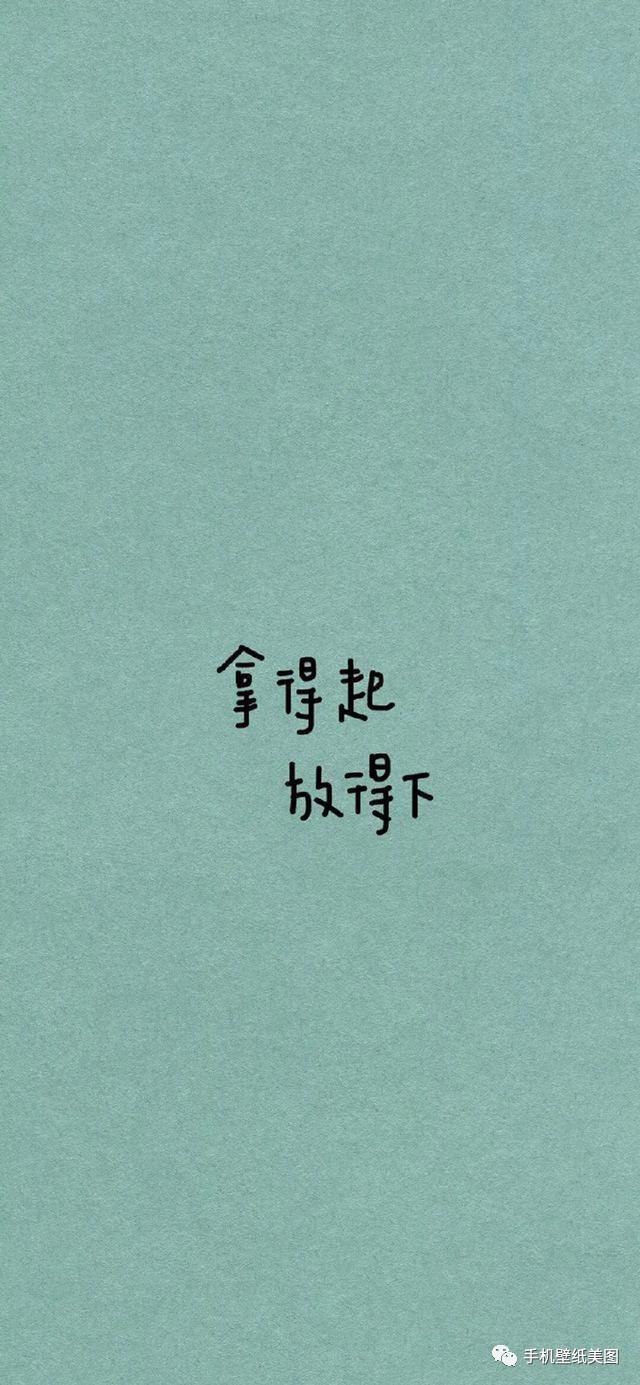 拿得起
放得下
手机壁纸美图